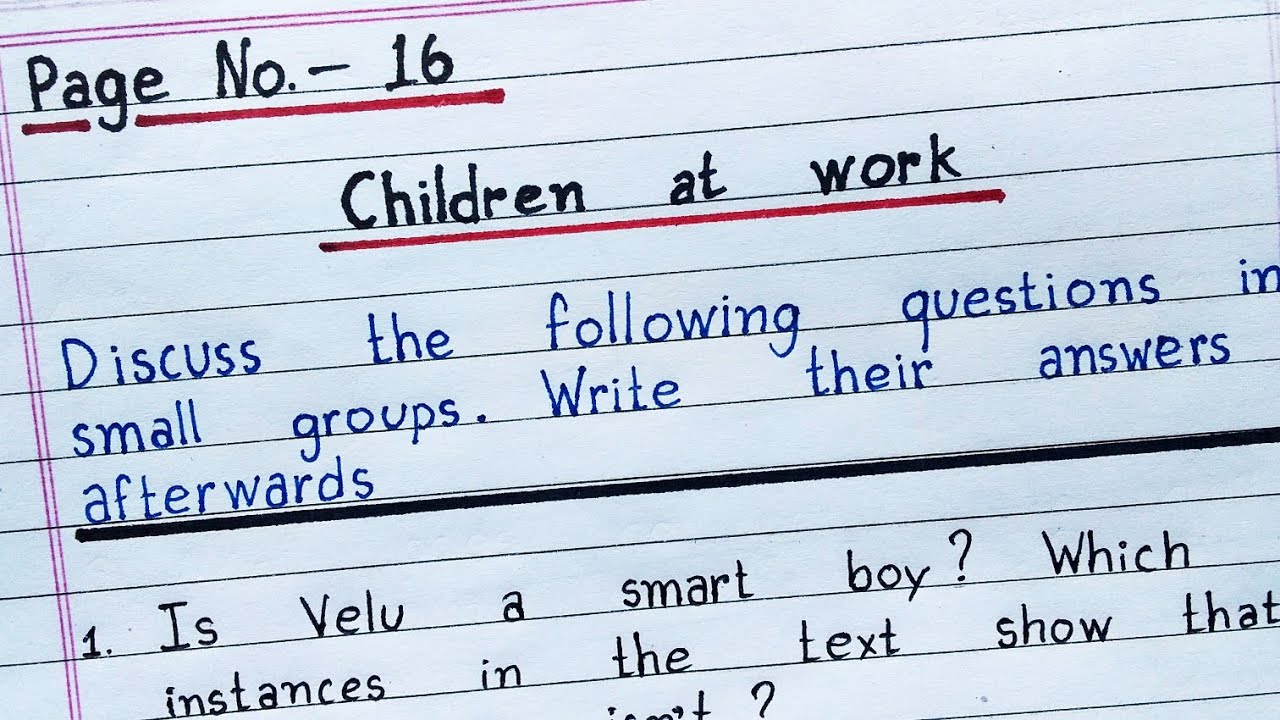 Page No. - 16
Children at work
Discuss the following questions in
small groups. Write their answers
afterwards
1. Is Velu a smart boy? Which
instances in the text show that
isn't?